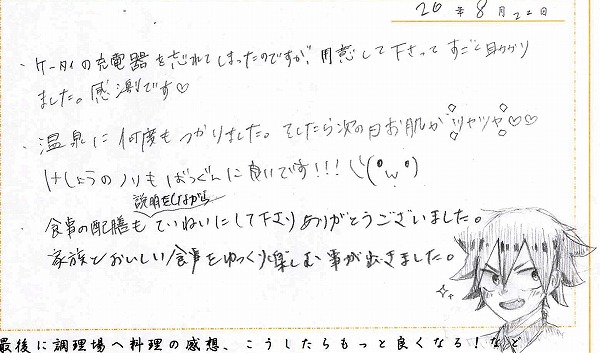 20年8月22日
・ケータイの充電器を忘れてしまったのですが、用意して下さってすごく助かり
ました。感激です♡
・温泉に何度もつかりました。そしたら次の日お肌がツヤツヤ♡♡
けしょうのノリもばつぐんに良いです!!!
説明をしながら
・食事の配膳もていねいにして下さりありがとうございました。
家族でおいしい食事をゆっくり楽しむ事が出きました。
最後に調理場へ料理の感想、こうしたらもっと良くなる!など